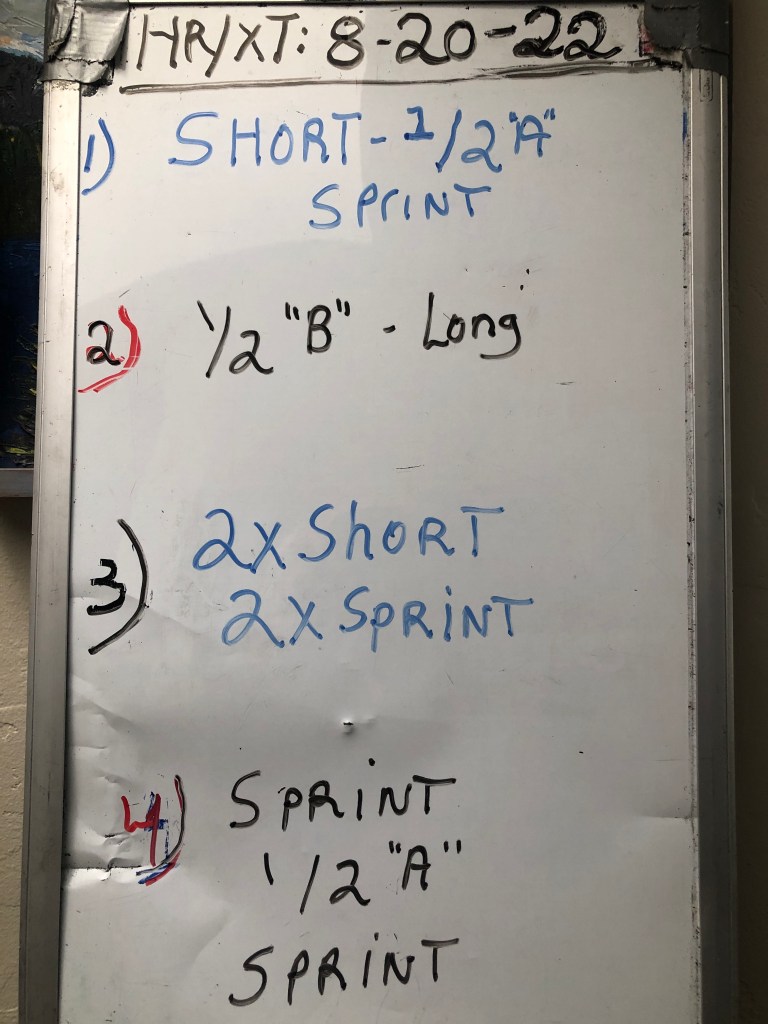 HR/XT: 8-20-22
1) SHORT - 1/2 "A"
SPrINT
2) 1/2 "B" - Long
3) 2x ShORT
2x SPRiNT
4) SPRiNT
1/2 "A"
SPRiNT